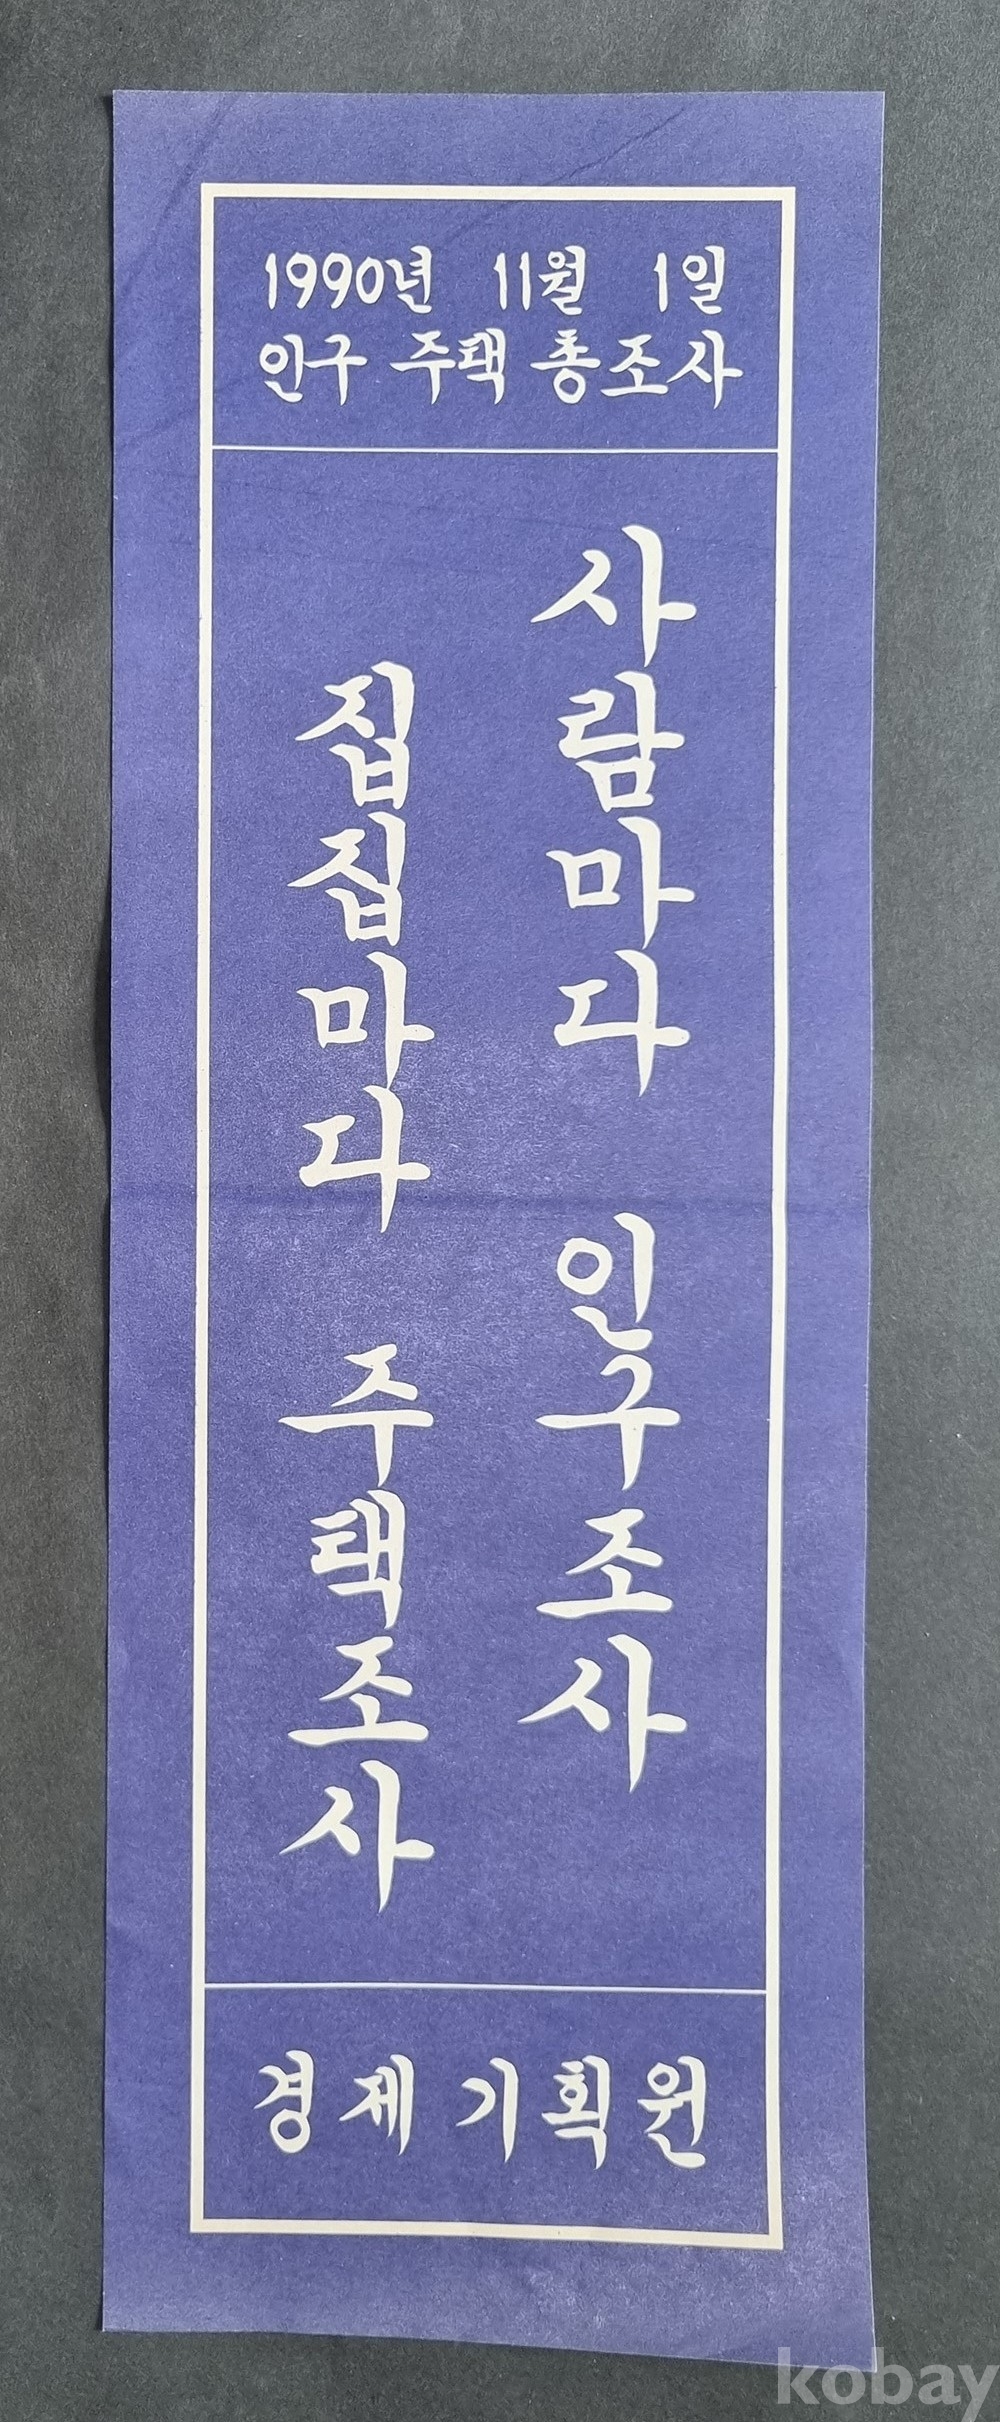 1990년 11월 1일
인구 주택 총조사
사람마다 인구조사
집집마다 주택조사
경제기획원
kobay